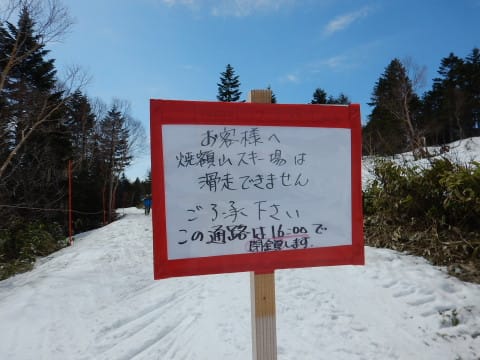 お客様へ
焼額山スキー場は
滑走できません
ご了承下さい
この通路は16:00で
閉鎖します。